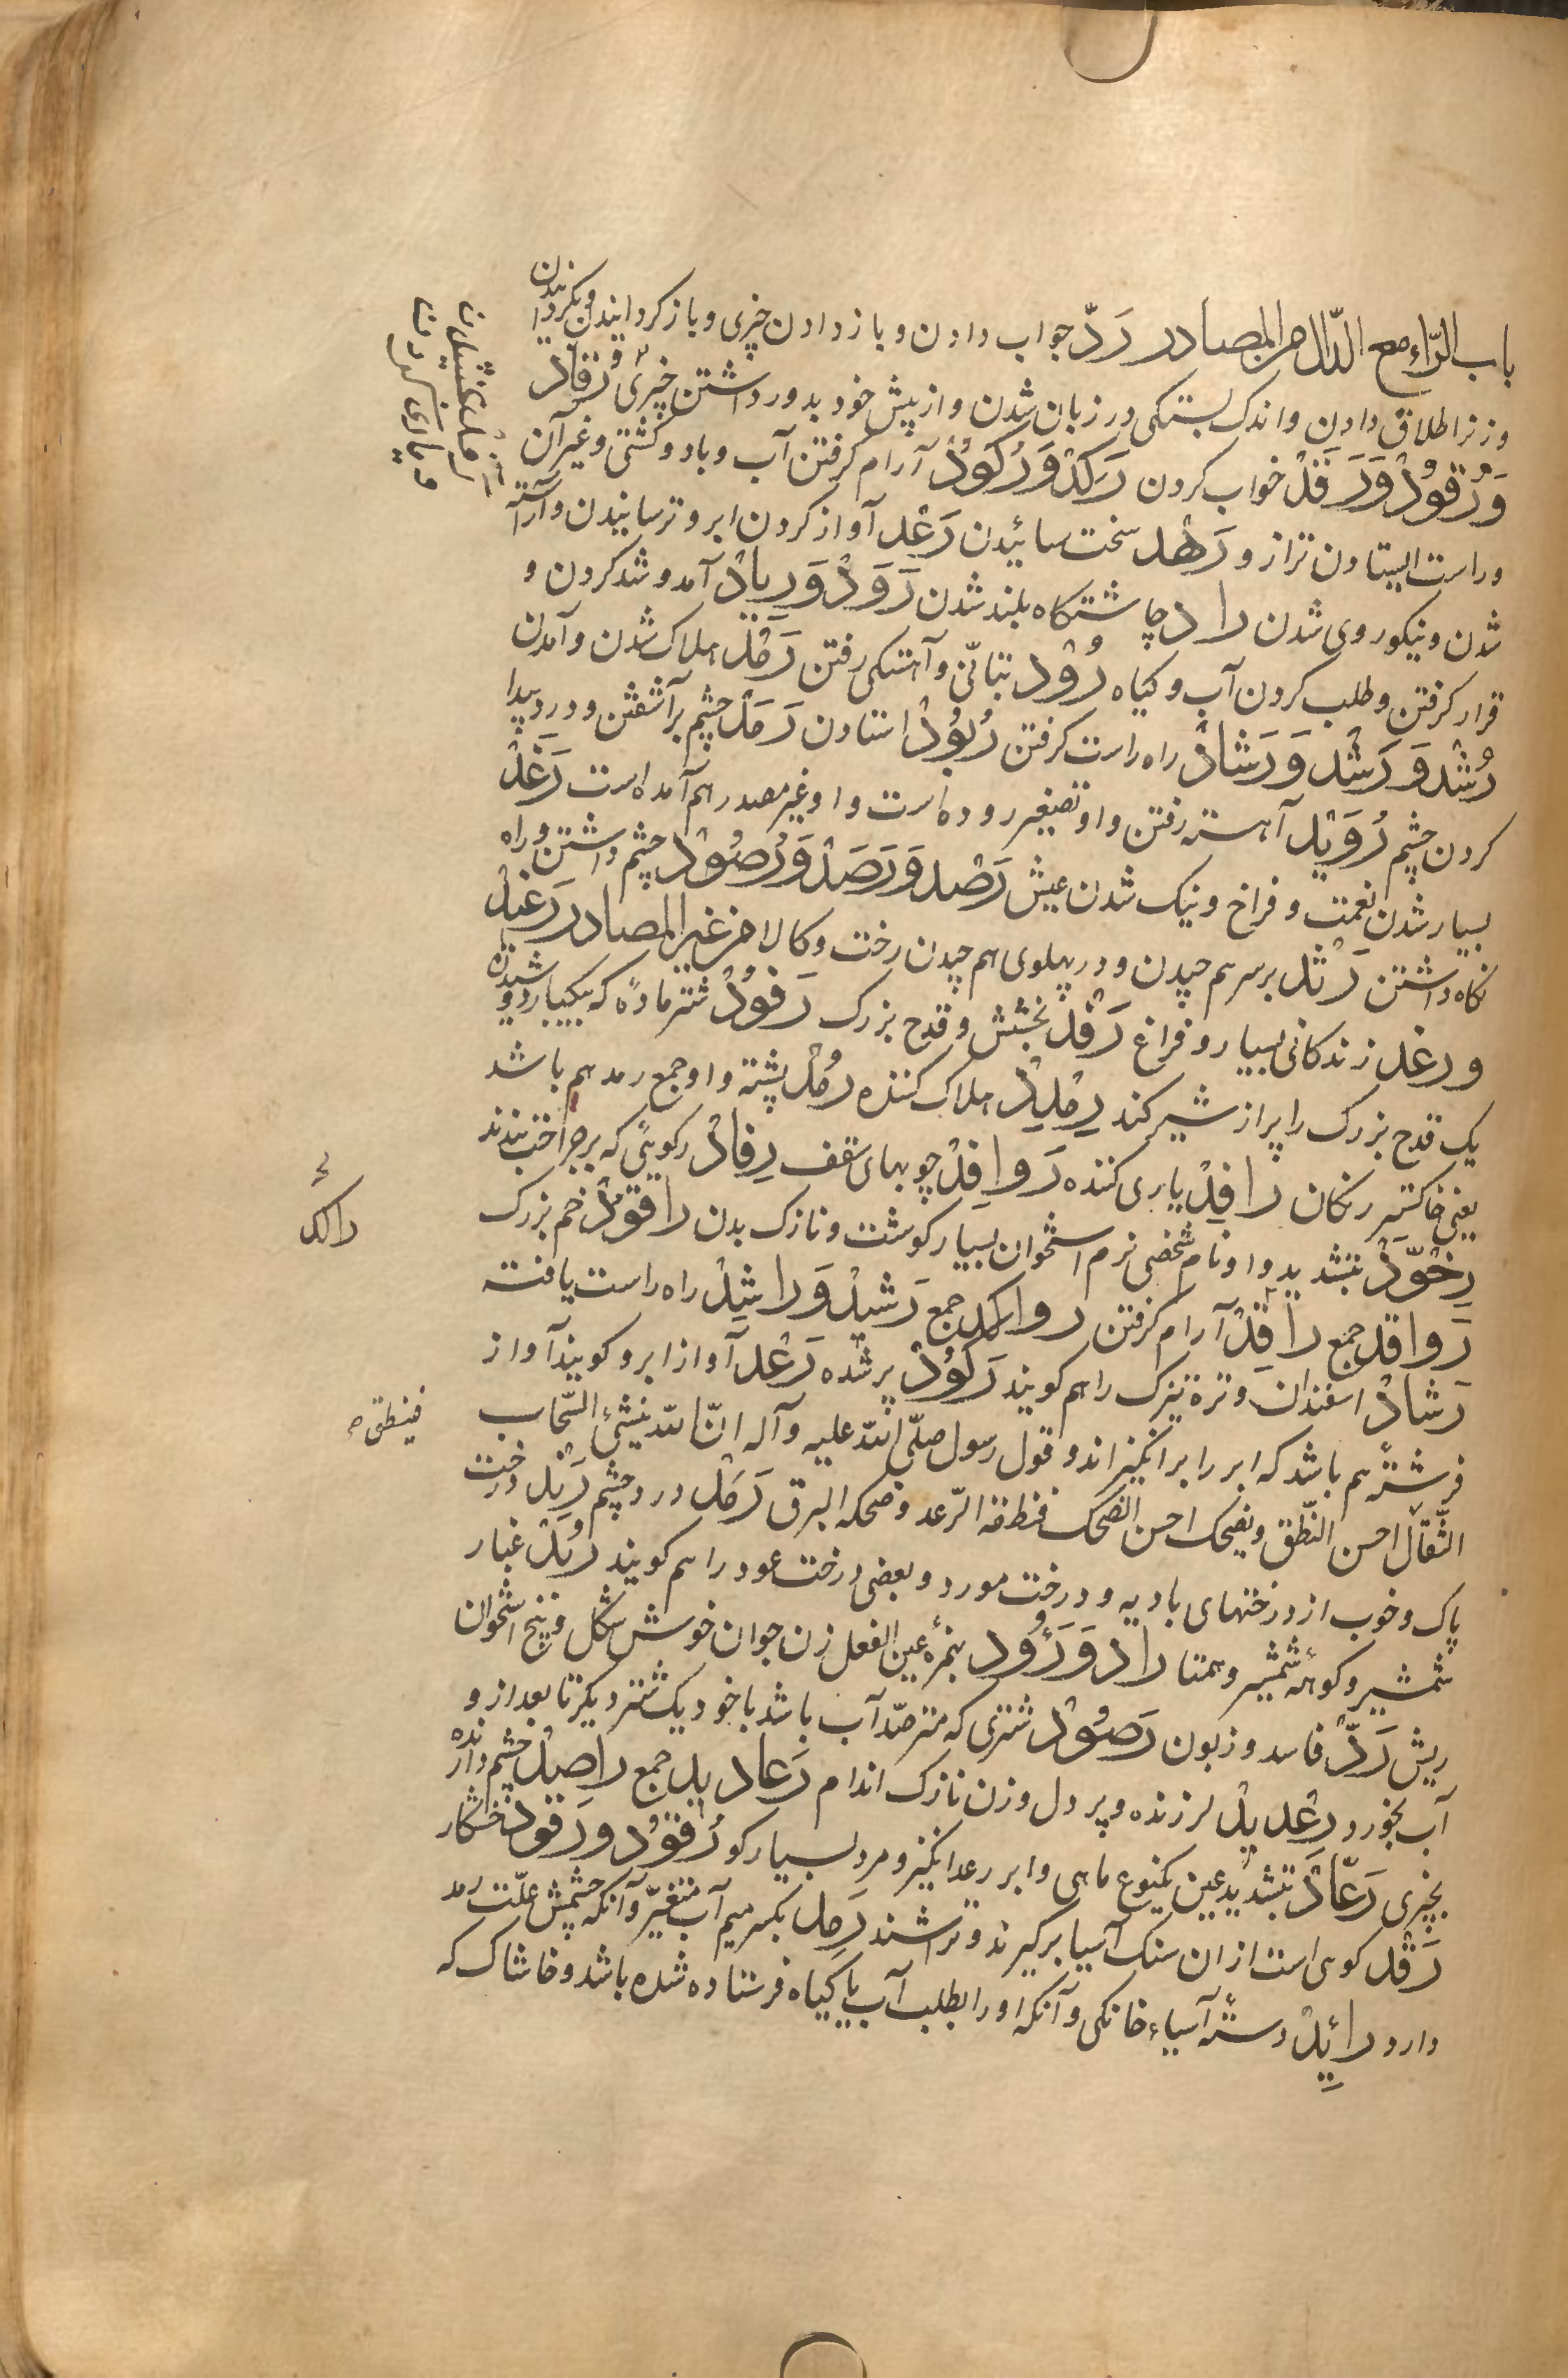 باب الرّاء مع الدّال من المصادر رَدّ جواب دادن و باز دادن چیزی و باز کردانیدن و بکردانیدن
و زنرا طلاق دادن و اندک بستکی در زبان شدن و از پیش خود بدور داشتن چیزی رُقَاد
وَرُقُودْ وَرَقَدْ خواب کردن رَکَدْ وَرُکُودْ آرام کرفتن آب و باد و کشتی و غیر آن
و راست ایستادن ترازو رَهْد سخت سائیدن رَعْد آواز کردن ابر و ترسانیدن و آراسته
شدن و نیکو روی شدن راد چاشتکاه بلند شدن رَوَدْ وَرِیادْ آمد و شد کردن و
قرار کرفتن و طلب کردن آب و کیاه رُوْد بتانّی و آهستکی رفتن رَمْد هلاک شدن و آمدن
رُشْد وَرَشَد وَرَشَادْ راه راست کرفتن رُبُودْ استادن رَمَدْ چشم برآشفتن و درد پیدا
کردن چشم رُوَیْد آهسته رفتن و او تصغیر روده است و او غیر مصدر هم آمده است رَغَدْ
بسیار شدن نعمت و فراخ و نیک شدن عیش رَصْد وَرَصَدْ وَرُصُوْدْ چشم داشتن و راه
نکاه داشتن رَثْد بر سر هم چیدن و در پهلوی هم چیدن رخت و کالا من غیر المصادر رَغِیْدْ
و رغد زندکانی بسیار و فراغ رَفْدْ بخشش و قدح بزرک رَفُوْدْ شتر مادّه که بیکبار دوشیدن
یک قدح بزرک را پر از شیر کند رِمْدِدْ هلاک کننده رُمْدْ پشته و او جمع رمد هم باشد
یعنی خاکستر رنکان رافِدْ یاری کننده رَوافِدْ چوبهای سقف رِفادْ رکویئی که بر جراحت بندند
رِخْوَدّ بتشدید واو نام شخصی نرم استخوان بسیار کوشت و نازک بدن راقُوْدْ خم بزرک
رَواقد جمع راقِدْ آرام کرفتن رواکد جمع رَشیدْ وَراشِدْ راه راست یافته
رَشادْ اسفندان و تره تیزک را هم کویند رَکُوْدْ پر شده رَعْد آواز ابر و کویند آواز
فرشته هم باشد که ابر را برانکیزاند و قول رسول صلّی الله علیه و آله انّ الله ینشیٔ السّحاب
الثّقال احسن النّطق و یضحک احسن الضحک فنطقه الرّعد و ضحکه البرق رَمَدْ درد چشم رَنْد درخت
پاک و خوب از درختهای بادیه و درخت مورد و بعضی درخت عود را هم کویند رُبَدْ غبار
شمشیر و کوهٔ شمشیر و همتا راد وَرَؤُود بهمزهٔ عین الفعل زن جوان خوش شکل و بیخ استخوان
ریش رَدّ فاسد و زبون رَصُوْدْ شتری که مترصّد آب باشد با خود یک شتر دیکر تا بعد از و
آب بخورد رِعْدِیْدْ لرزنده و پر دل و زن نازک اندام رَعادید جمع راصِدْ چشم دارنده
بچیزی رَعّادْ بتشدید عین یکنوع ماهی و ابر رعد انکیز و مرد بسیار کو رُقُوْد و رَقود خفتکار
رَقْد کوهی است از ان سنک آسیا برکیرند و تراشند رَمِد بکسر میم آب متغیّر و آنکه چشمش علّت رمد
دارد رائِدْ دستهٔ آسیاء خانکی و آنکه او را بطلب آب یا کیاه فرستاده شده باشد و خاشاک که
و یاری کردن
راکد
فینطق